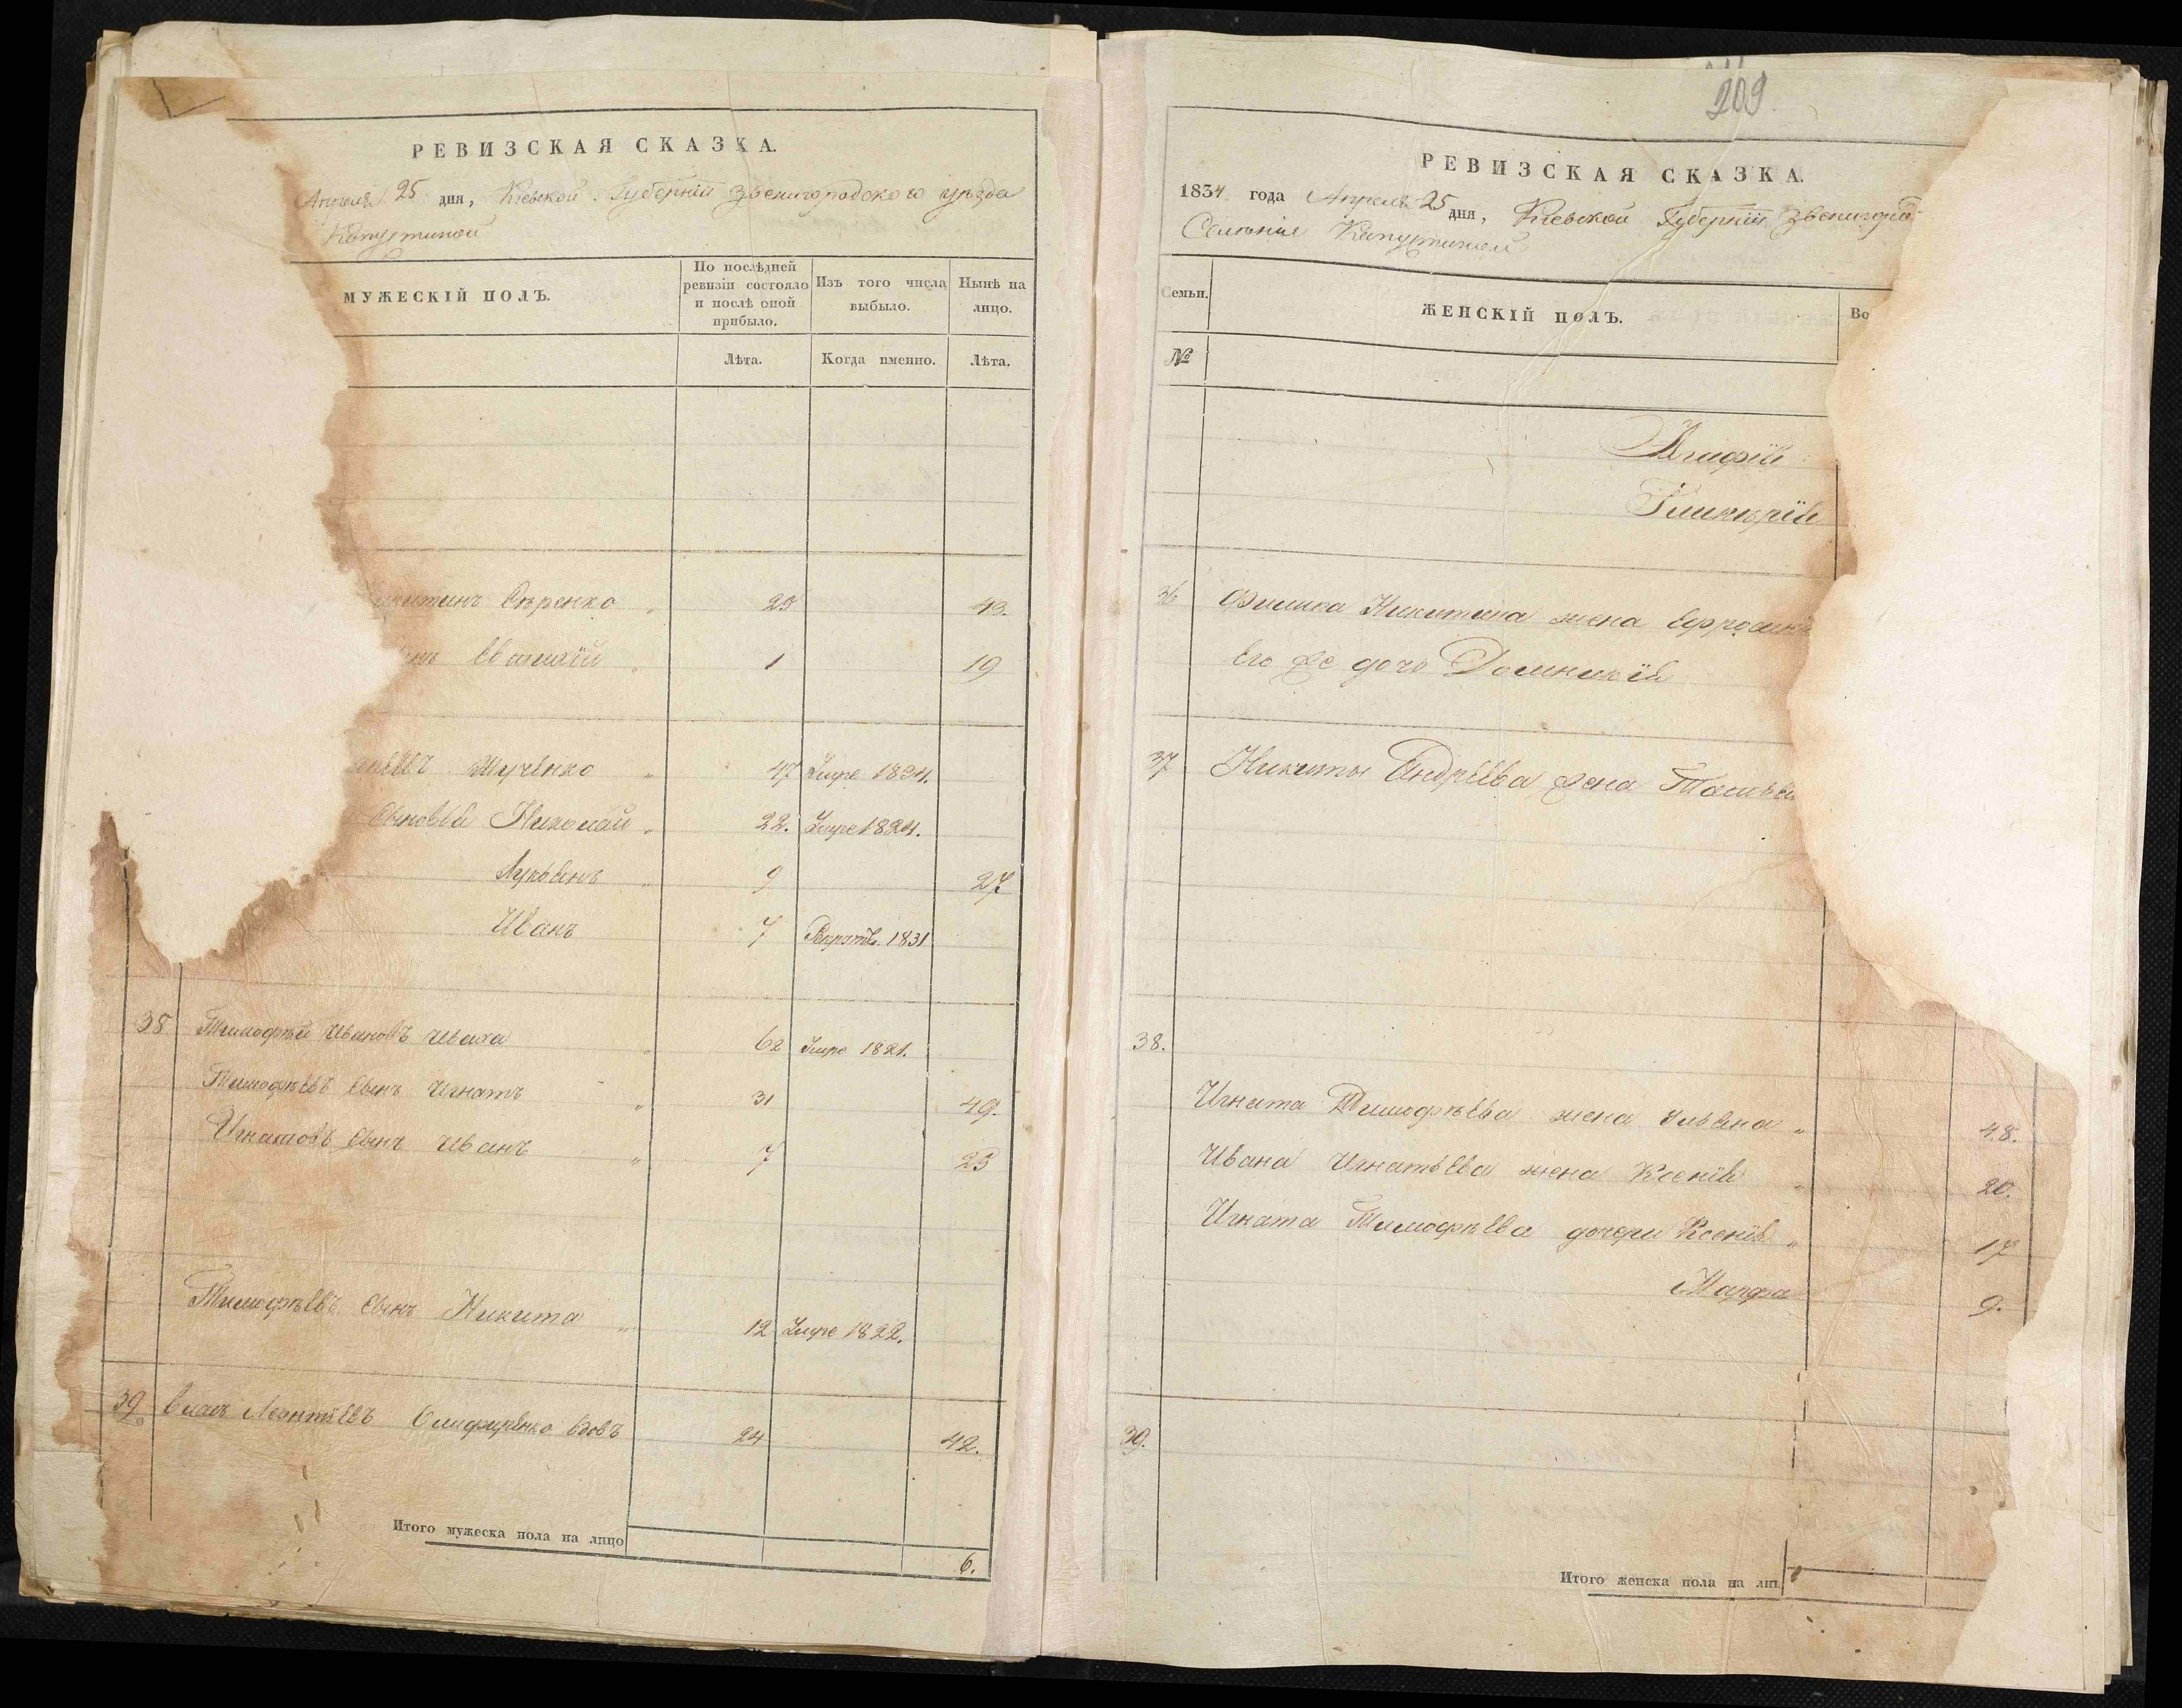 РЕВИЗСКАЯ СКАЗКА.
Апреля 25 дня, Кіевской Губерніи Звенигородского уѣзда
МУЖЕСКІЙ ПОЛЪ.
По послѣдней ревизіи состояло и послѣ оной прибыло.
Изъ того числа выбыло.
Нынѣ на лицо.
Лѣта.
Когда именно.
Лѣта.
Сѣренко 25 43.
1 19
47 Умре 1824.
Сыновья Николай 22. Умре 1824.
Лукьянъ 9 27
Иванъ 7 1831
38 Тимофѣй Ивановъ 62 Умре 1821.
Тимофѣевъ сынъ Игнатъ 31 49.
Игнатовъ сынъ Иванъ 7 25
Тимофѣевъ сынъ Никита 12 Умре 1822.
39. Власъ Леонтьевъ вдовъ 24 42.
Итого мужеска пола на лицо
6.
209
РЕВИЗСКАЯ СКАЗКА.
1834 года Апреля 25 дня, Кіевской Губерніи Звенигород
Селенія
Семьи.
ЖЕНСКІЙ ПОЛЪ.
Во
№
Агафія
Гликерія
36 Никитина жена
Его же дочь Домникія
37 Никиты Андрѣева жена
38.
Игната Тимофѣева жена Ульяна 48.
Ивана Игнатьева жена Ксенія 20.
Игната Тимофѣева дочери Ксенія 17
Марфа 9.
39.
Итого женска пола на ли